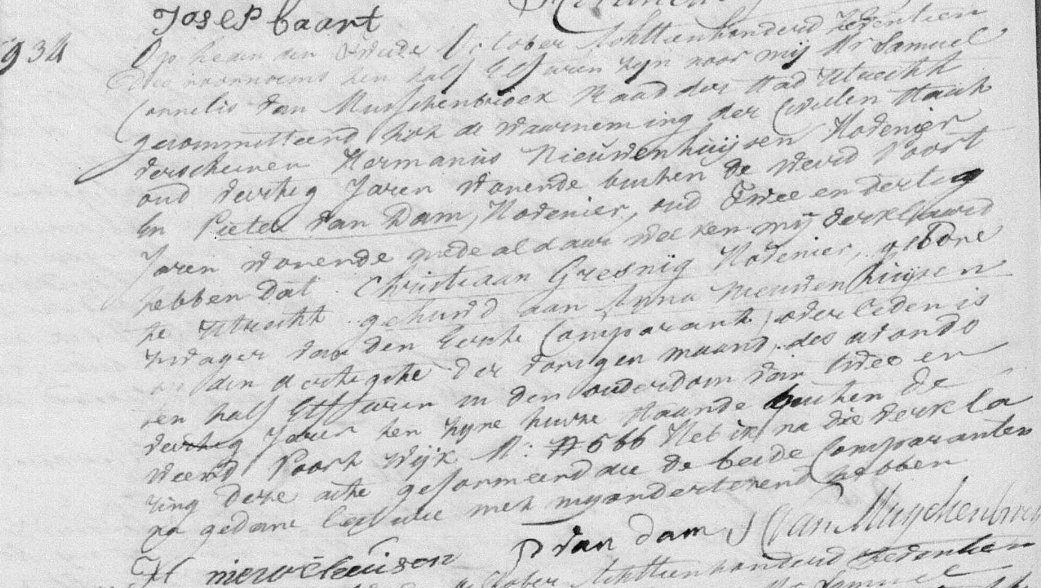 Josep baart
934
Op heden den Tweede October Achttienhonderd Zeventien
des voornoens ten half Elf uren zyn voor mij Mr Samuel
Cornelis van Musschenbroek Raad der Stad Utrecht
gecommitteerd tot de waarneming der Civielen Staat
verschenen Hermanus Nieuwenhuijsen Hovenier
oud dertig Jaren wonende buiten de weerd Poort
En Pieter van Dam, Hovenier, oud Twee en dertig
Jaren wonende mede aldaar welken mij verklaard
hebben dat Christiaan Gresnig Hovenier, gebore
te Utrecht gehuwd aan Anna Nieuwenhuijsen
zwager van den Eerste Comparant, overleden is
op den dertigste der vorigen maand, des avonds
ten half Elf uren in den ouderdom van twee en
dertig Jaren ten zyne huize staande buiten de
Weerd Poort Wijk M: #566 Heb ik na die verkla
ring deze acte geformeerd die de beide Comparanten
na gedane lecture met my ondertekend hebben
H nieuwenhuisen P van dam S C Van Musschenbroek
October Achttienhonderd Zeventien
Mr Samuel